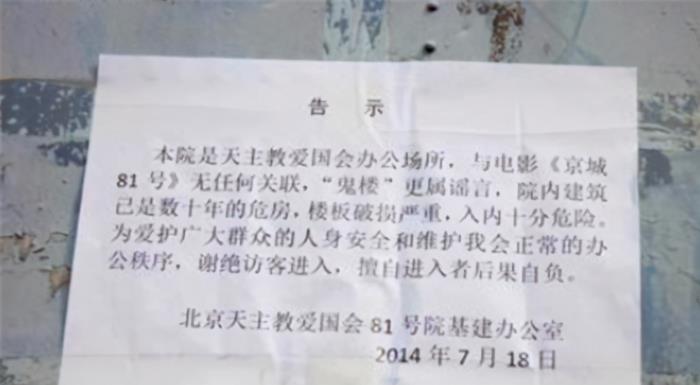 告 示
本院是天主教爱国会办公场所，与电影《京城
81号》无任何关联，“鬼楼”更属谣言，院内建筑
已是数十年的危房，楼板破损严重，入内十分危险。
为爱护广大群众的人身安全和维护我会正常的办
公秩序，谢绝访客进入，擅自进入者后果自负。
北京天主教爱国会81号院基建办公室
2014年7月18日